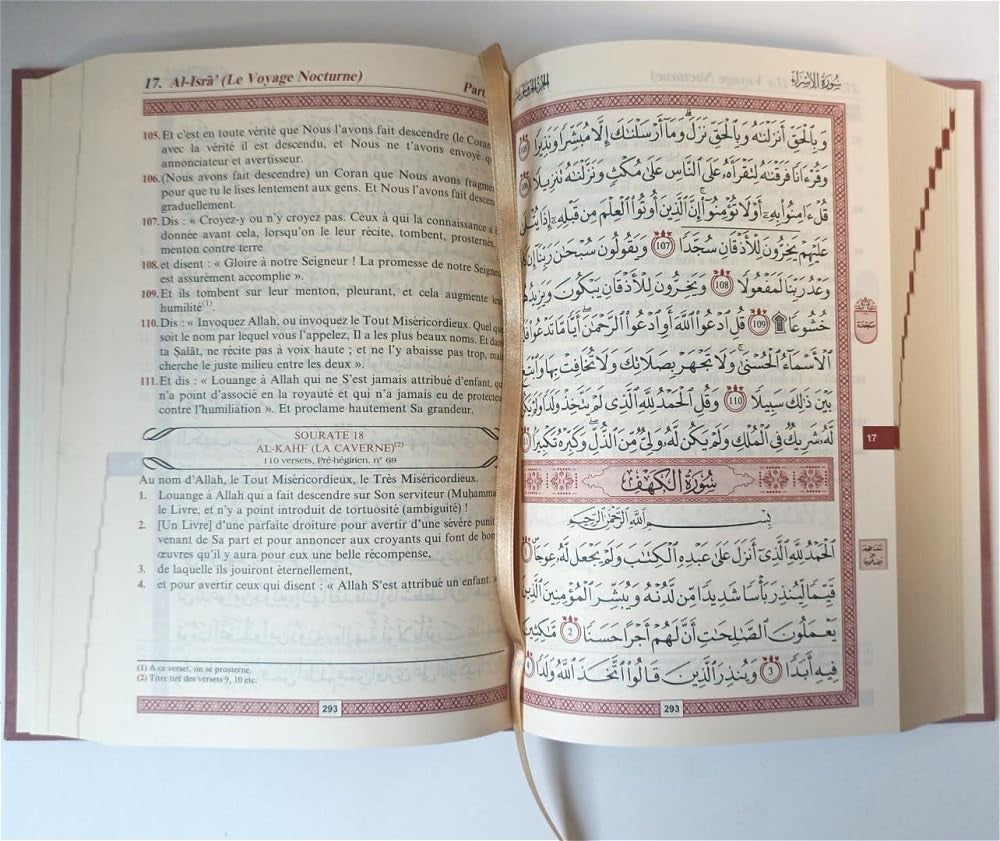 17. Al-Isrā' (Le Voyage Nocturne)
Part
105. Et c'est en toute vérité que Nous l'avons fait descendre (le Coran
avec la vérité il est descendu, et Nous ne t'avons envoyé q
annonciateur et avertisseur.
106. (Nous avons fait descendre) un Coran que Nous avons fragme
pour que tu le lises lentement aux gens. Et Nous l'avons fait descen
graduellement.
107. Dis : « Croyez-y ou n'y croyez pas. Ceux à qui la connaissance a
donnée avant cela, lorsqu'on le leur récite, tombent, prosternés,
menton contre terre
108. et disent : « Gloire à notre Seigneur ! La promesse de notre Seigne
est assurément accomplie ».
109. Et ils tombent sur leur menton, pleurant, et cela augmente leu
humilité(1).
110. Dis : « Invoquez Allah, ou invoquez le Tout Miséricordieux. Quel qu
soit le nom par lequel vous l'appelez, Il a les plus beaux noms. Et dan
ta Salāt, ne récite pas à voix haute ; et ne l'y abaisse pas trop, mai
cherche le juste milieu entre les deux ».
111. Et dis : « Louange à Allah qui ne S'est jamais attribué d'enfant, qu
n'a point d'associé en la royauté et qui n'a jamais eu de protecte
contre l'humiliation ». Et proclame hautement Sa grandeur.
SOURATE 18
AL-KAHF (LA CAVERNE)(2)
110 versets, Pré-hégirien, n° 69
Au nom d'Allah, le Tout Miséricordieux, le Très Miséricordieux.
1. Louange à Allah qui a fait descendre sur Son serviteur (Muḥamma
le Livre, et n'y a point introduit de tortuosité (ambiguïté) !
2. [Un Livre] d'une parfaite droiture pour avertir d'une sévère punit
venant de Sa part et pour annoncer aux croyants qui font de bon
œuvres qu'il y aura pour eux une belle récompense,
3. de laquelle ils jouiront éternellement,
4. et pour avertir ceux qui disent : « Allah S'est attribué un enfant. »
(1) A ce verset, on se prosterne.
(2) Titre tiré des versets 9, 10 etc.
293
سُورَةُ الإِسْرَاءِ
وَبِالْحَقِّ أَنزَلْنَاهُ وَبِالْحَقِّ نَزَلَ وَمَا أَرْسَلْنَاكَ إِلَّا مُبَشِّرًا وَنَذِيرًا 105
وَقُرْءَانًا فَرَقْنَاهُ لِتَقْرَأَهُ عَلَى النَّاسِ عَلَىٰ مُكْثٍ وَنَزَّلْنَاهُ تَنزِيلًا 106
قُلْ ءَامِنُوا بِهِ أَوْ لَا تُؤْمِنُوا إِنَّ الَّذِينَ أُوتُوا الْعِلْمَ مِن قَبْلِهِ إِذَا يُتْلَ
عَلَيْهِمْ يَخِرُّونَ لِلْأَذْقَانِ سُجَّدًا 107 وَيَقُولُونَ سُبْحَانَ رَبِّنَا إِن كَ
وَعْدُ رَبِّنَا لَمَفْعُولًا 108 وَيَخِرُّونَ لِلْأَذْقَانِ يَبْكُونَ وَيَزِيدُ
خُشُوعًا ۩ 109 قُلِ ادْعُوا اللَّهَ أَوِ ادْعُوا الرَّحْمَٰنَ أَيًّا مَّا تَدْعُوا فَلَ
الْأَسْمَاءُ الْحُسْنَىٰ وَلَا تَجْهَرْ بِصَلَاتِكَ وَلَا تُخَافِتْ بِهَا وَابْتَغِ
بَيْنَ ذَٰلِكَ سَبِيلًا 110 وَقُلِ الْحَمْدُ لِلَّهِ الَّذِي لَمْ يَتَّخِذْ وَلَدًا وَلَمْ يَكُ
لَّهُ شَرِيكٌ فِي الْمُلْكِ وَلَمْ يَكُن لَّهُ وَلِيٌّ مِّنَ الذُّلِّ وَكَبِّرْهُ تَكْبِيرًا
سُورَةُ الْكَهْفِ
بِسْمِ اللَّهِ الرَّحْمَٰنِ الرَّحِيمِ
الْحَمْدُ لِلَّهِ الَّذِي أَنزَلَ عَلَىٰ عَبْدِهِ الْكِتَابَ وَلَمْ يَجْعَل لَّهُ عِوَجًا
قَيِّمًا لِّيُنذِرَ بَأْسًا شَدِيدًا مِّن لَّدُنْهُ وَيُبَشِّرَ الْمُؤْمِنِينَ الَّذِينَ
يَعْمَلُونَ الصَّالِحَاتِ أَنَّ لَهُمْ أَجْرًا حَسَنًا 2 مَّاكِثِينَ
فِيهِ أَبَدًا 3 وَيُنذِرَ الَّذِينَ قَالُوا اتَّخَذَ اللَّهُ وَلَدًا
سَجْدَة
17
293